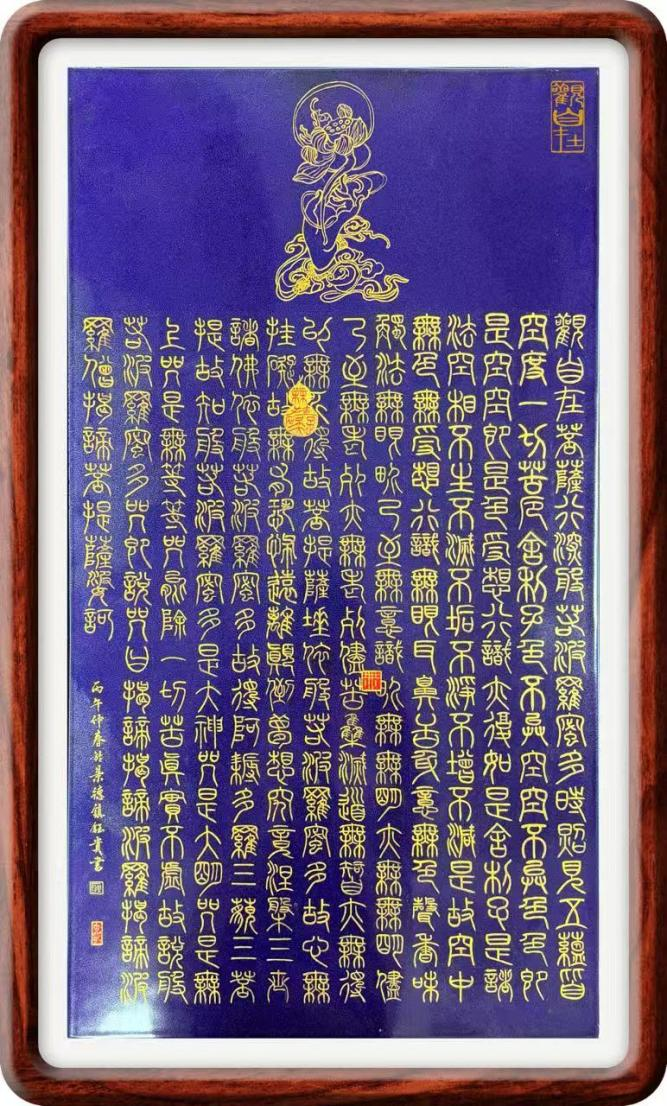 觀自在
觀自在菩薩行深般若波羅蜜多時照見五蘊皆
空度一切苦厄舍利子色不異空空不異色色即
是空空即是色受想行識亦復如是舍利子是諸
法空相不生不滅不垢不淨不增不減是故空中
無色無受想行識無眼耳鼻舌身意無色聲香味
觸法無眼界乃至無意識界無無明亦無無明儘
乃至無老死亦無老死儘苦集滅道無智亦無得
以無所得故菩提薩埵依般若波羅蜜多故心無
挂礙故無有恐怖遠離顛倒夢想究竟涅槃三世
諸佛依般若波羅蜜多故得阿耨多羅三藐三菩
提故知般若波羅蜜多是大神咒是大明咒是無
上咒是無等等咒能除一切苦真實不虛故說般
若波羅蜜多咒即說咒曰揭諦揭諦波羅揭諦波
羅僧揭諦菩提薩婆訶
丙午仲春於景德鎮書